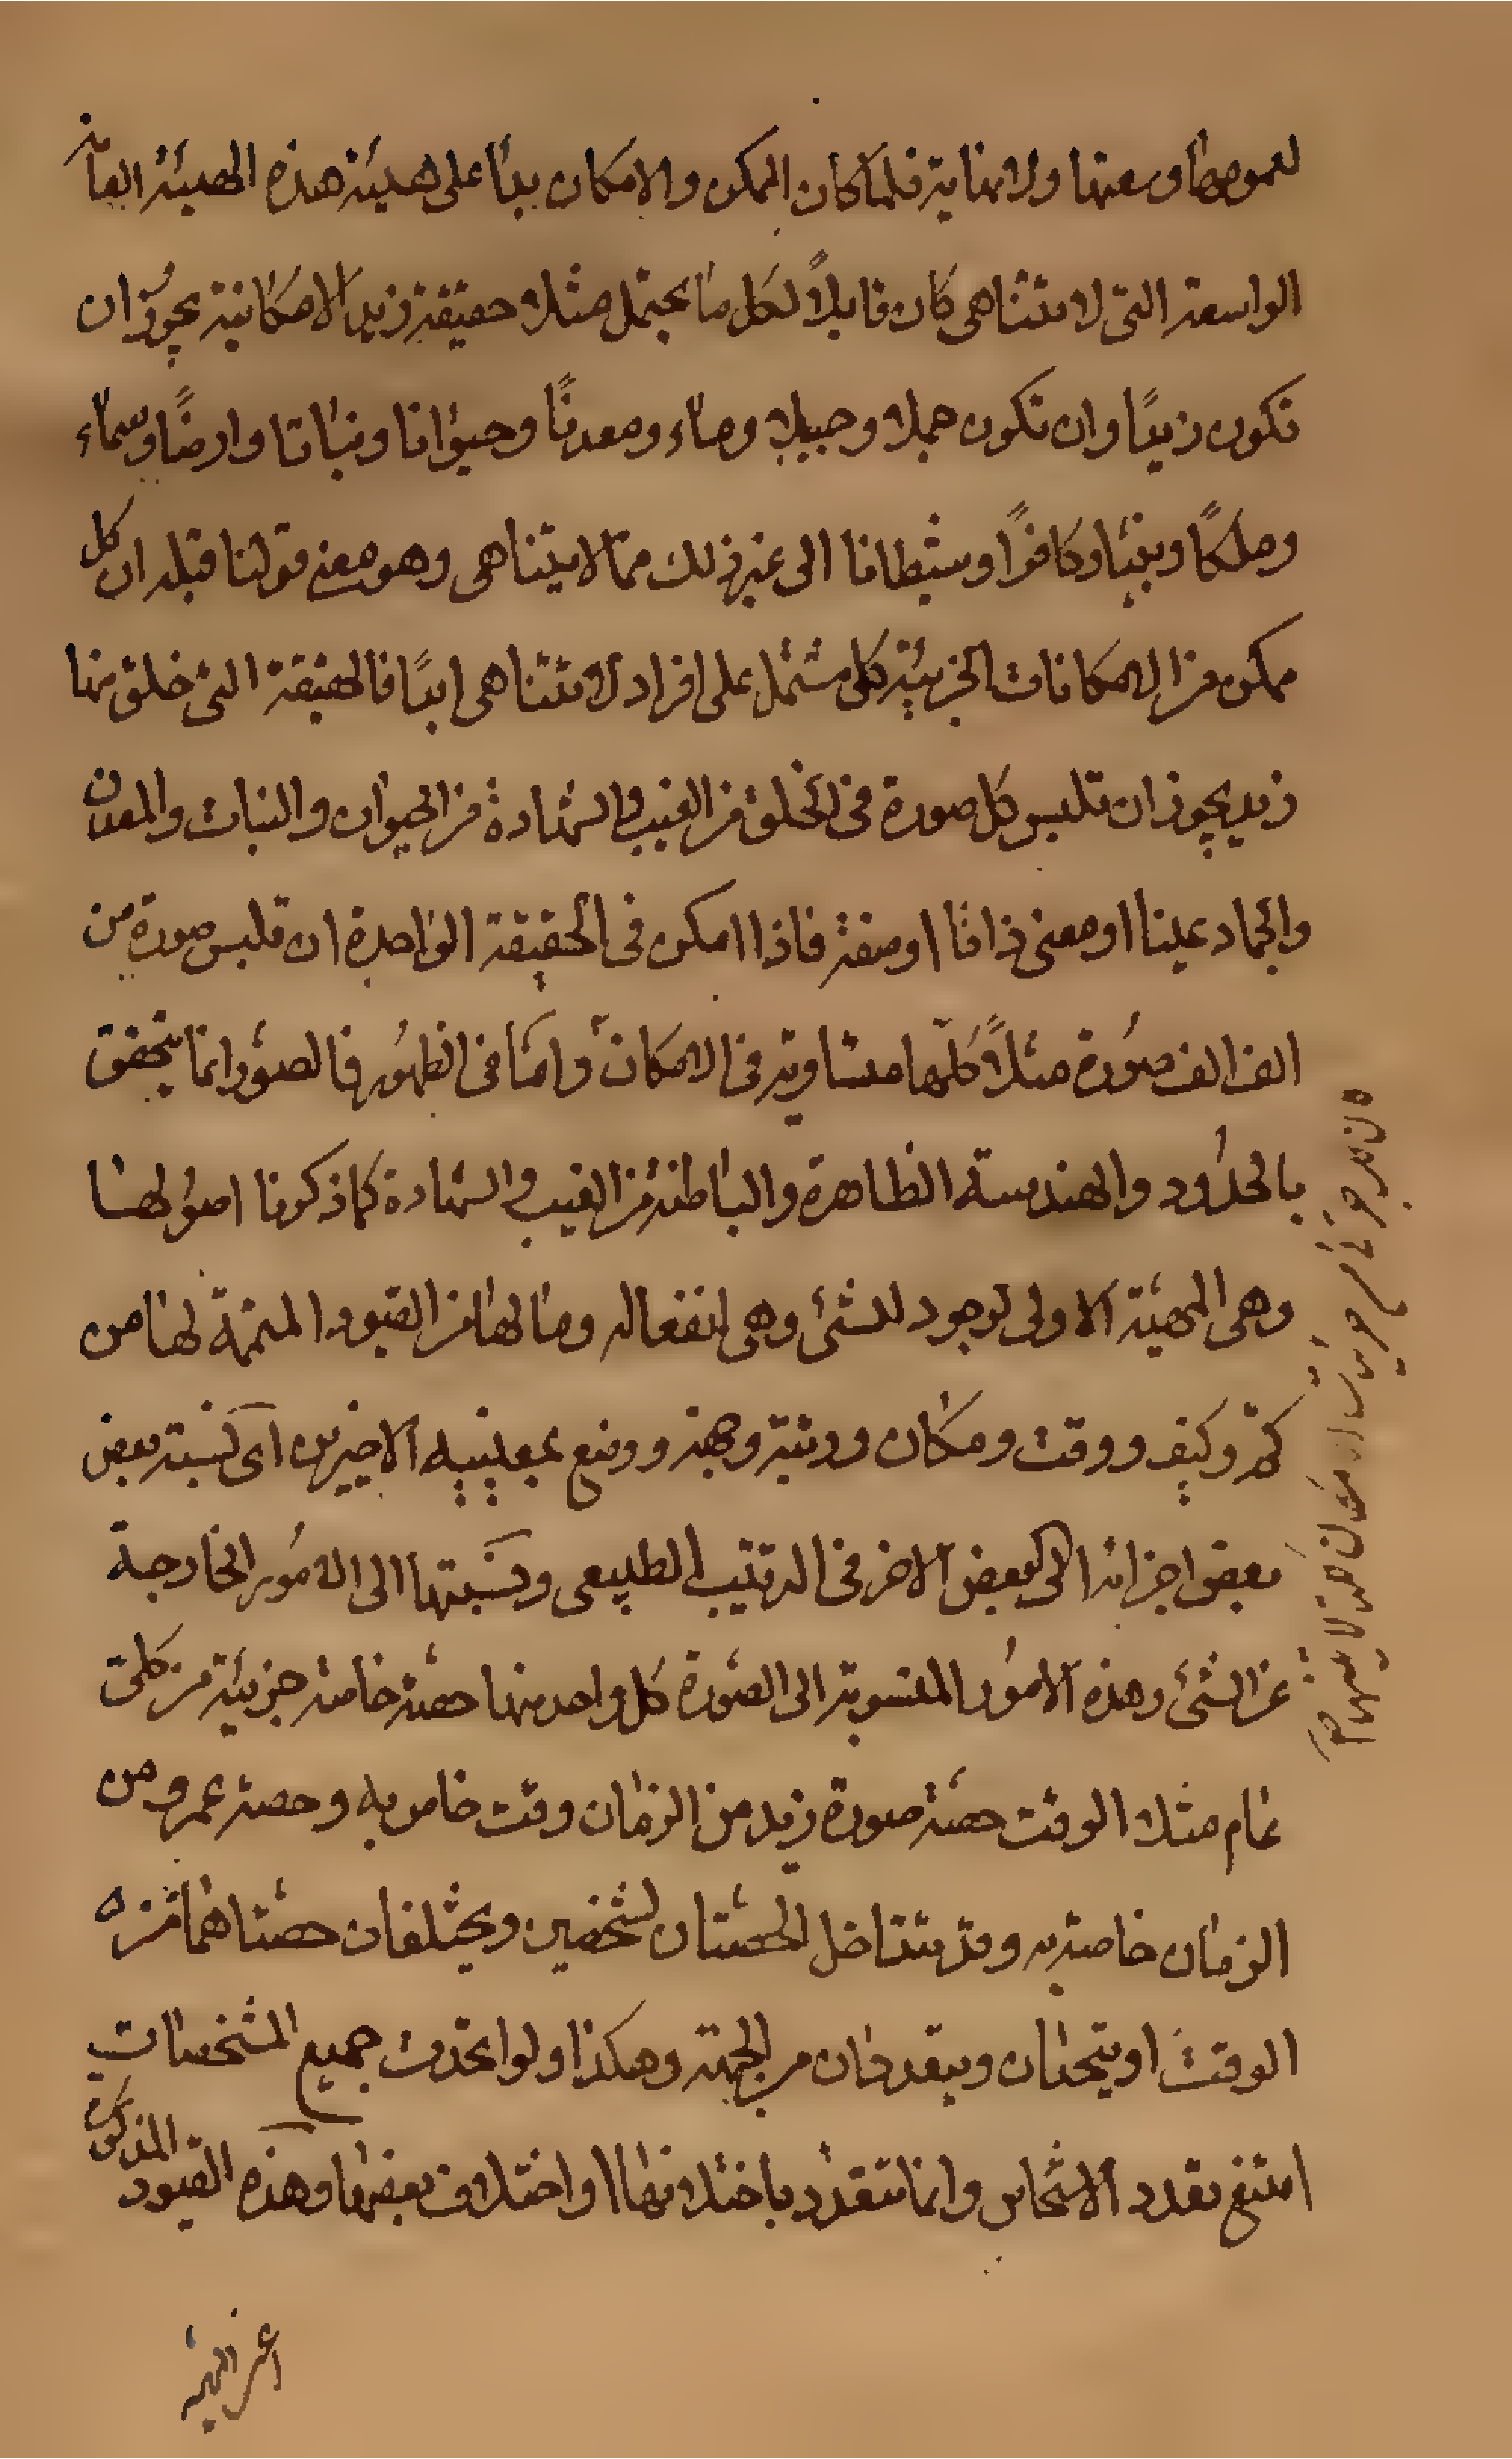 لعمومها وسعتها ولانهاية فلما كان الممكن والامكان بدأ على هيئة هذه الهيئة العامة
الواسعة التى لا تتناهى كان قابلاً لكل ما يحتمل مثلا حقيقة زيد الامكانية يجوز ان
تكون زيدًا وان تكون جملا وجبلا وماء ومعدنًا وحيوانا ونباتا وارضًا وسماء
وملكًا ونبيّا وكافرًا وشيطانا الى غير ذلك ممّا لا يتناهى وهو معنى قولنا قبله ان كل
ممكن من الامكانات الجزئية كلى مشتمل على افراد لا تتناهى ابدًا فالحقيقة التى خلق منها
زيد يجوز ان تلبس كل صورة فى الخلق من الغيب والشهادة من الحيوان والنبات والمعدن
والجماد عينا او معنى ذاتًا او صفة فاذا امكن فى الحقيقة الواحدة ان تلبس صورة من
الف الف صورة مثلاً كلّها متساوية فى الامكان وامّا فى الظهور فالصور انما يتحقق
بالحدود والهندسة الظاهرة والباطنة من الغيب والشهادة كما ذكرنا اصولها
وهى المهيّة الاولى لوجود للشئ وهى انفعاله وما لها من القيود المتممة لها من
كم وكيف ووقت ومكان ورتبة وجهة ووضع بمعنييه الاخيرين اى نسبة بعض
بعض اجزائه الى البعض الاخر فى الترتيب الطبيعى ونسبتها الى الامور الخارجة
عن الشئ وهذه الامور المنسوبة الى الصورة كل واحد منها حصة خاصة جزئية من كلى
عام مثلا الوقت حصة صورة زيد من الزمان وقت خاص به وحصة عمرو من
الزمان خاصة به وقد تتداخل الحصتان لشخصين ويختلفان حصتاهما من
الوقت او يتحدان ويتعددان من الجهة وهكذا ولو اتحدت جميع المشخصات
امتنع تعدد الاشخاص وانما تتعدد باختلافها او اختلاف بعضها وهذه القيود المذكورة